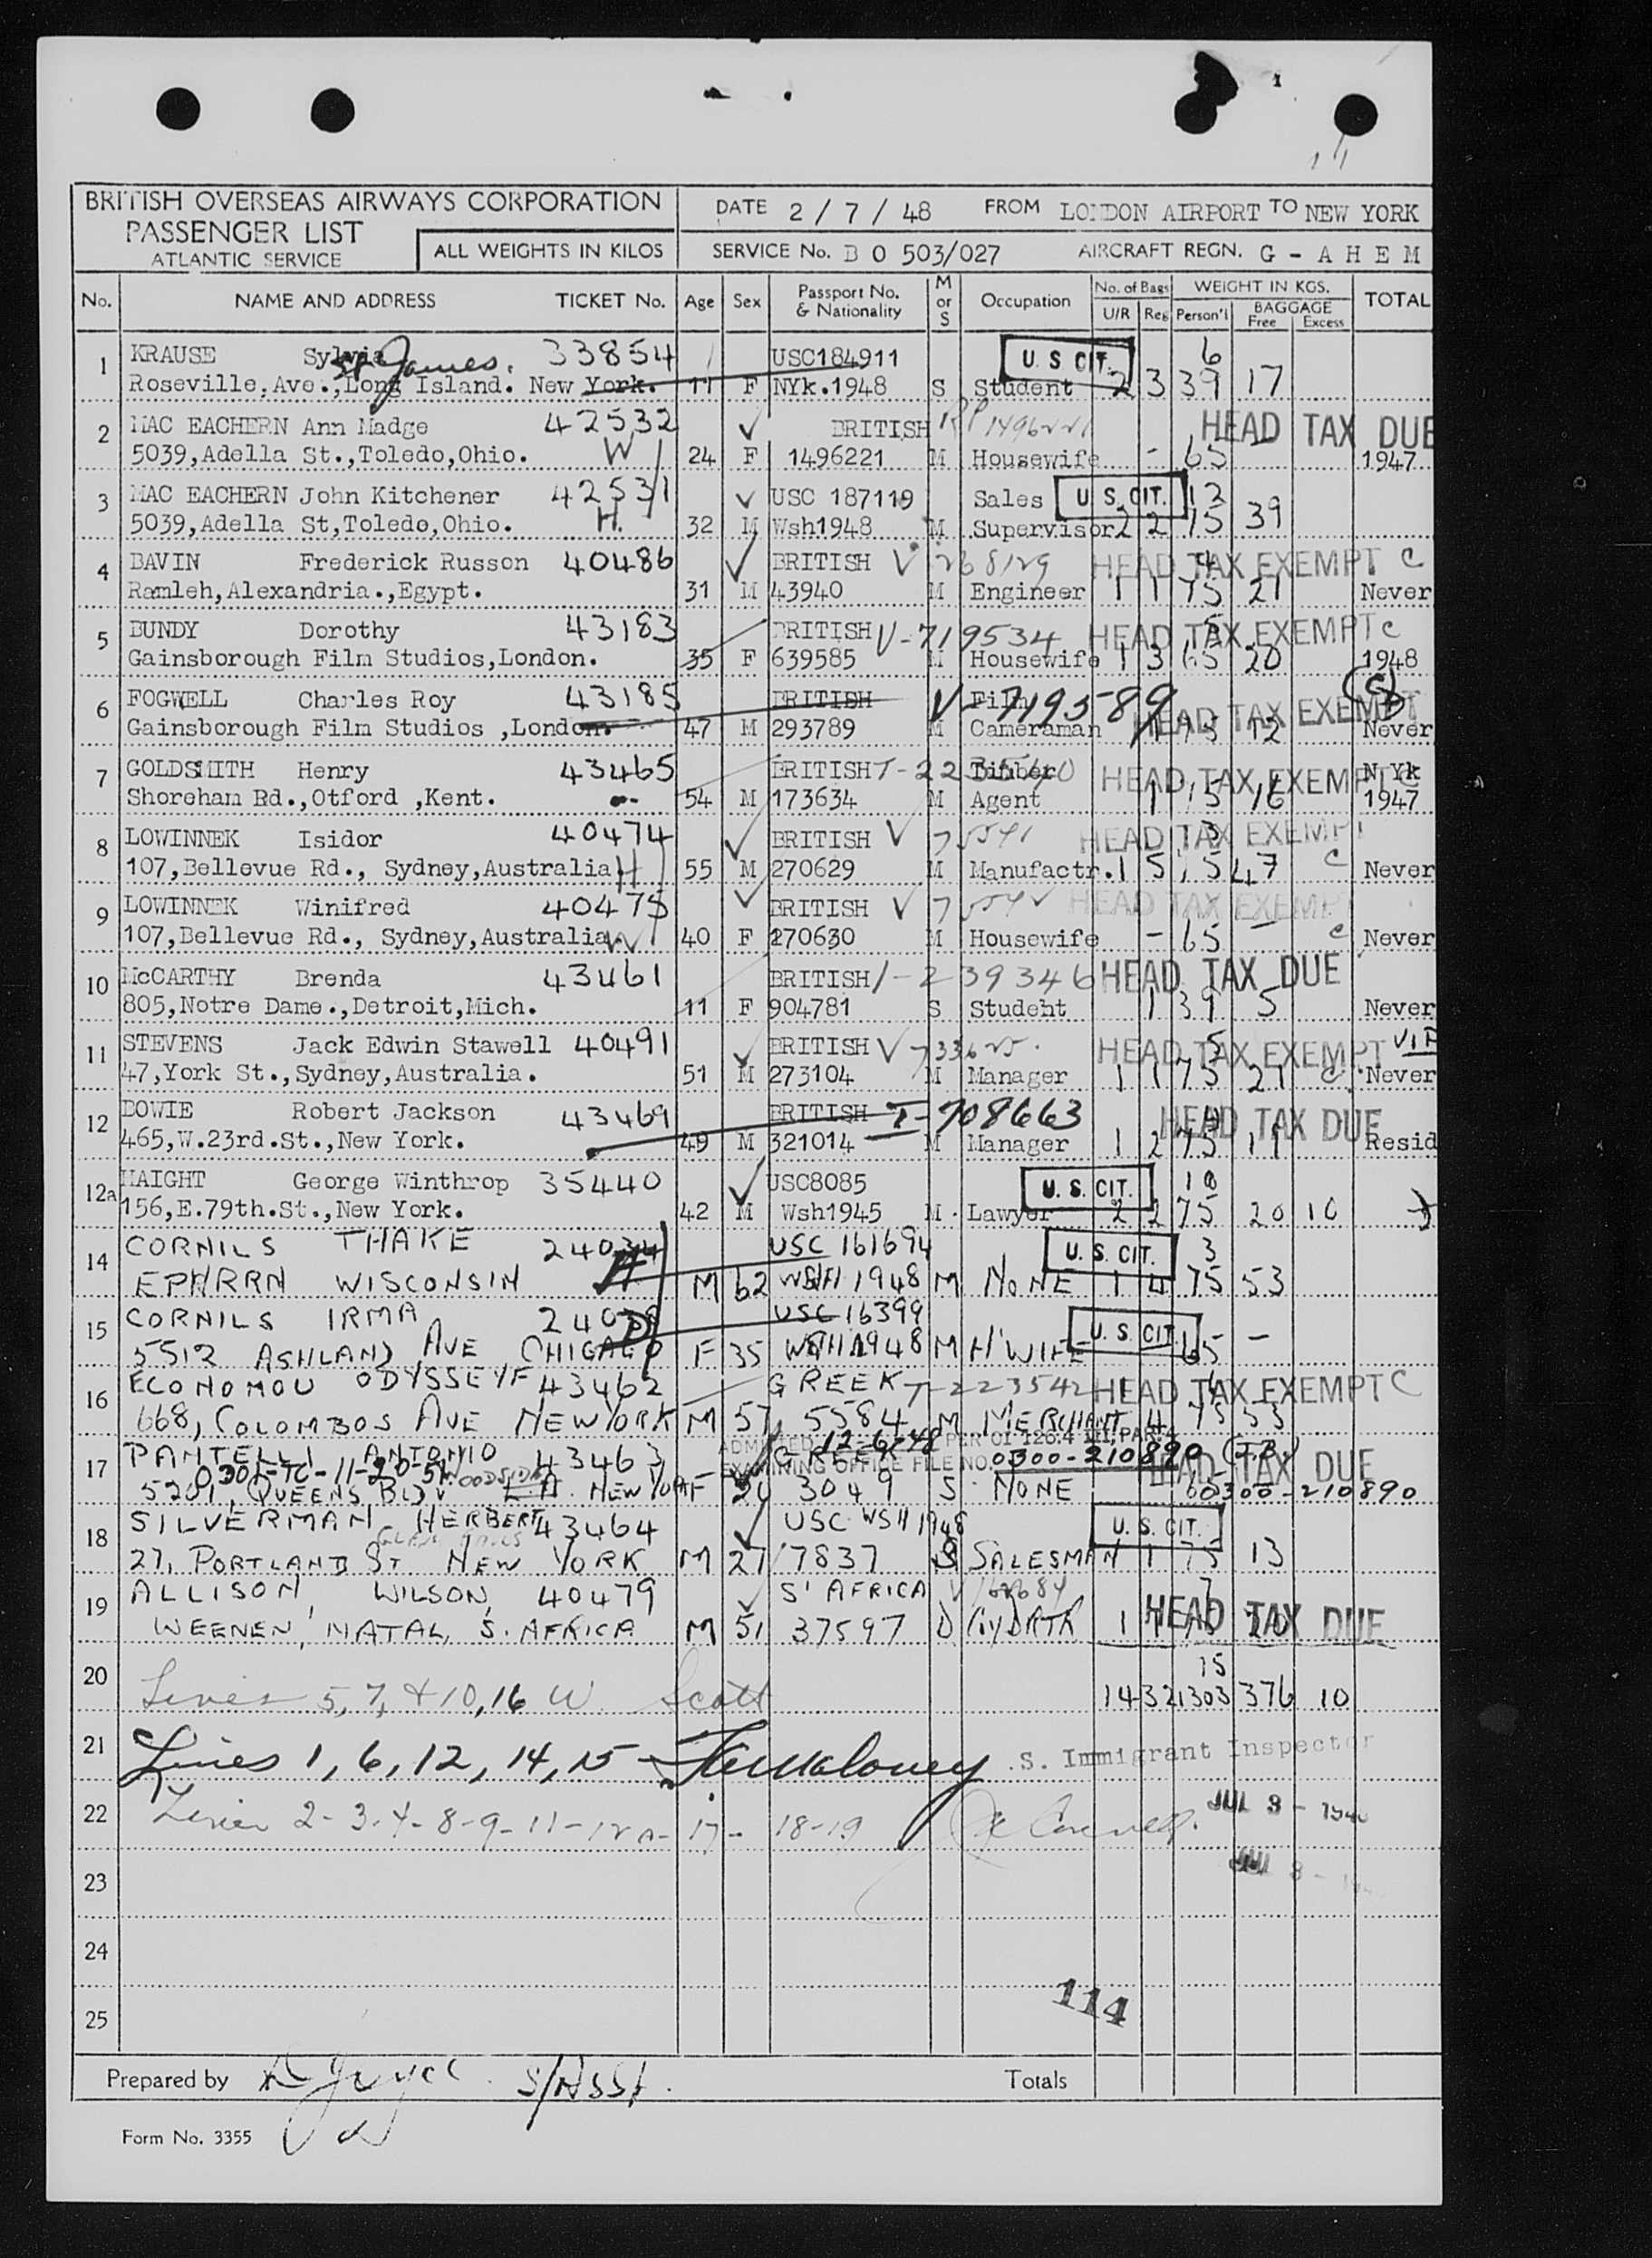 BRITISH OVERSEAS AIRWAYS CORPORATION
PASSENGER LIST
ATLANTIC SERVICE
ALL WEIGHTS IN KILOS
DATE 2 / 7 / 48 FROM LONDON AIRPORT TO NEW YORK
SERVICE No. B O 503/027 AIRCRAFT REGN. G - A H E M
No. NAME AND ADDRESS TICKET No. Age Sex Passport No. & Nationality M or S Occupation No. of Bags U/R Reg WEIGHT IN KGS. Person'l BAGGAGE Free Excess TOTAL
1 KRAUSE Sylvia 33854 USC184911 U. S CIT. 6
St James.
Roseville.Ave.,Long Island. New York. 11 F NYk.1948 S Student 2 3 39 17
2 MAC EACHERN Ann Madge 42532 BRITISH RP 1496221 HEAD TAX DUE
5039,Adella St.,Toledo,Ohio. W 24 F 1496221 M Housewife - 65 1947
3 MAC EACHERN John Kitchener 42531 USC 187119 Sales U. S. CIT. 12
5039,Adella St,Toledo,Ohio. H. 32 M Wsh1948 M Supervisor 2 2 75 39
4 BAVIN Frederick Russon 40486 BRITISH V 268129 HEAD TAX EXEMPT C
Ramleh,Alexandria.,Egypt. 31 M 43940 M Engineer 1 1 75 21 Never
5 BUNDY Dorothy 43183 BRITISH V-719534 HEAD TAX EXEMPT C
Gainsborough Film Studios,London. 35 F 639585 M Housewife 1 3 65 20 1948
6 FOGWELL Charles Roy 43185 BRITISH V-719589 Film HEAD TAX EXEMPT (C)
Gainsborough Film Studios ,London. 47 M 293789 M Cameraman 1 75 12 Never
7 GOLDSMITH Henry 43465 BRITISH Timber HEAD TAX EXEMPT C N Yk
Shoreham Rd.,Otford ,Kent. 54 M 173634 M Agent 1 75 16 1947
8 LOWINNEK Isidor 40474 BRITISH V 75541 HEAD TAX EXEMPT 3
107,Bellevue Rd., Sydney,Australia H 55 M 270629 M Manufactr. 1 5 75 47 C Never
9 LOWINNEK Winifred 40475 BRITISH V 75542 HEAD TAX EXEMPT
107,Bellevue Rd., Sydney,Australia. W 40 F 270630 M Housewife - 65 - C Never
10 McCARTHY Brenda 43461 BRITISH 1-239346 HEAD TAX DUE
805,Notre Dame.,Detroit,Mich. 11 F 904781 S Student 1 39 5 Never
11 STEVENS Jack Edwin Stawell 40491 BRITISH V-733625. HEAD TAX EXEMPT VIP
47,York St.,Sydney,Australia. 51 M 273104 M Manager 1 1 75 21 C Never
12 DOWIE Robert Jackson 43469 BRITISH I-708663 HEAD TAX DUE
465,W.23rd.St.,New York. 49 M 321014 M Manager 1 2 75 11 Resid
12a HAIGHT George Winthrop 35440 USC8085 U. S. CIT. 10
156,E.79th.St.,New York. 42 M Wsh1945 M Lawyer 2 2 75 20 10
14 CORNILS THAKE 24034 USC 161694 U. S. CIT. 3
EPHRRN WISCONSIN H M 62 WSH 1948 M NONE 1 4 75 53
15 CORNILS IRMA USC 16399 U. S. CIT.
5512 ASHLAND AVE CHICAGO F 35 WSH 1948 M H'WIFE 65 -
16 ECONOMOU ODYSSEYF 43462 GREEK T-223542 HEAD TAX EXEMPT C
668, COLOMBOS AVE NEW YORK M 57 5584 M MERCHANT 4 75 53
ADMITTED 12-6-48 PER OI-126.4 III, PAR. 4
17 PANTELLI ANTONIO 43463 GREEK HEAD TAX DUE
EXAMINING OFFICE FILE NO. 0300-210890 (I.B.)
0300-TC-11-20-51 WOODSIDE
5201, QUEENS BLDV L.A. NEW YORK F 20 3049 S NONE 0300-210890
18 SILVERMAN HERBERT 43464 USC WSH 1948 U. S. CIT.
27, PORTLAND ST NEW YORK M 27 7837 S SALESMAN 1 75 13
19 ALLISON, WILSON, 40479 S' AFRICA HEAD TAX DUE
WEENEN, NATAL, S. AFRICA M 51 37597 D 1 1 75 20
20 15
Lines 5, 7, & 10, 16 W. Scott 14 32 1303 376 10
21 Lines 1, 6, 12, 14, 15 - Maloney .S. Immigrant Inspector
22 Lines 2-3-4-8-9-11-12a-17- 18-19 JUL 3 - 1948
23 JUL 3 -
24
114
25
Prepared by A Joyce S/ASST. Totals
Form No. 3355